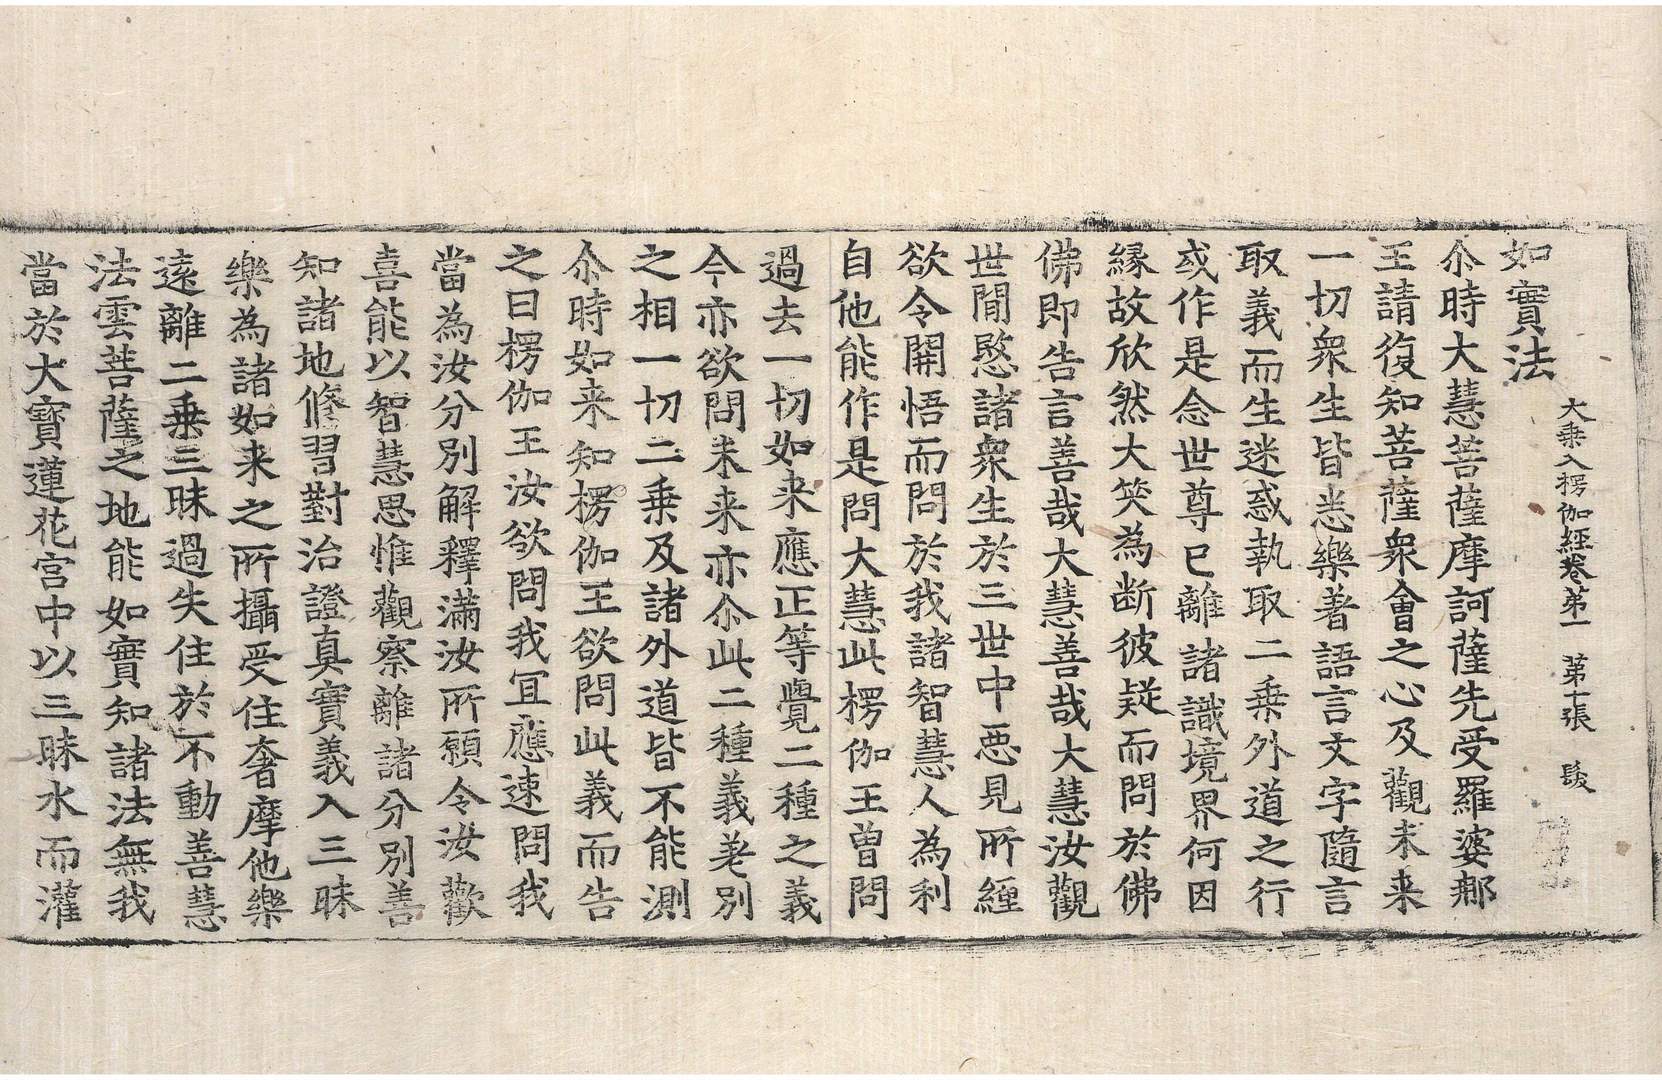 大乗入楞伽經卷第一　第十張　髮
如實法
尒時大慧菩薩摩訶薩先受羅婆那
王請復知菩薩衆會之心及觀未来
一切衆生皆悉樂著語言文字隨言
取義而生迷惑執取二乗外道之行
或作是念世尊已離諸識境界何因
縁故欣然大笑為断彼疑而問於佛
佛即告言善哉大慧善哉大慧汝觀
世間愍諸衆生於三世中恶見所纏
欲令開悟而問於我諸智慧人為利
自他能作是問大慧此楞伽王曽問
過去一切如来應正等覺二種之義
今亦欲問未来亦尒此二種義差別
之相一切二乗及諸外道皆不能測
尒時如来知楞伽王欲問此義而告
之曰楞伽王汝欲問我冝應速問我
當為汝分別解釋滿汝所願令汝歡
喜能以智慧思惟觀察離諸分別善
知諸地修習對治證真實義入三昧
樂為諸如来之所攝受住奢摩他樂
逺離二乗三昧過失住於不動善慧
法雲菩薩之地能如實知諸法無我
當於大寳蓮花宫中以三昧水而灌